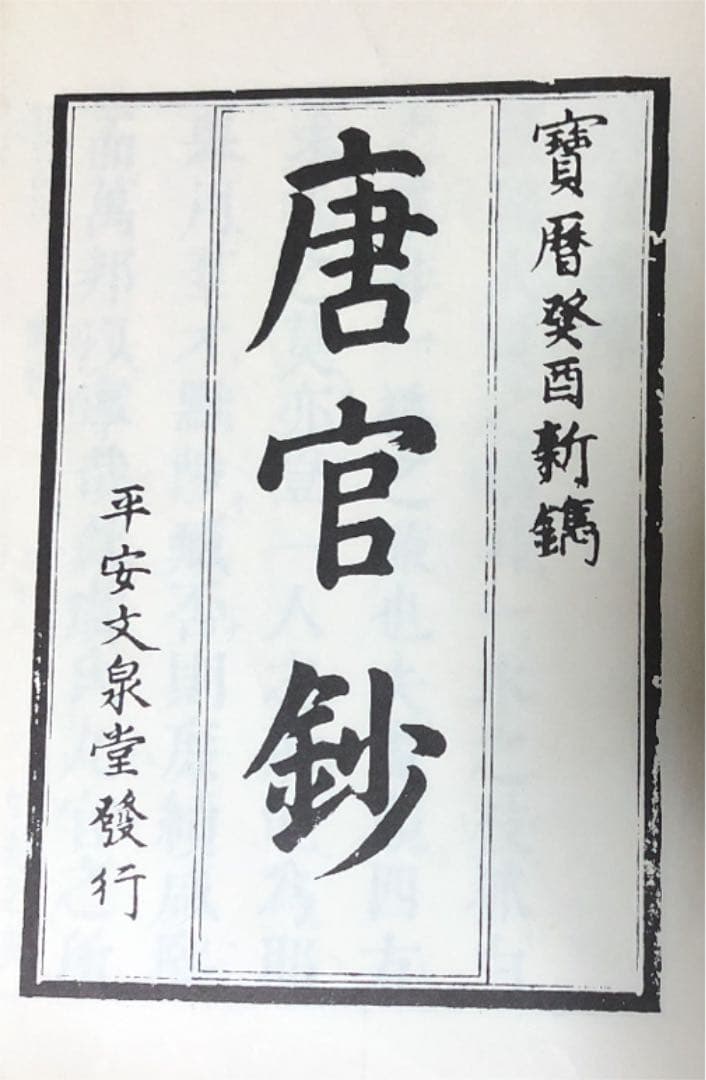 寶暦癸酉新鐫
唐官鈔
平安文泉堂發行